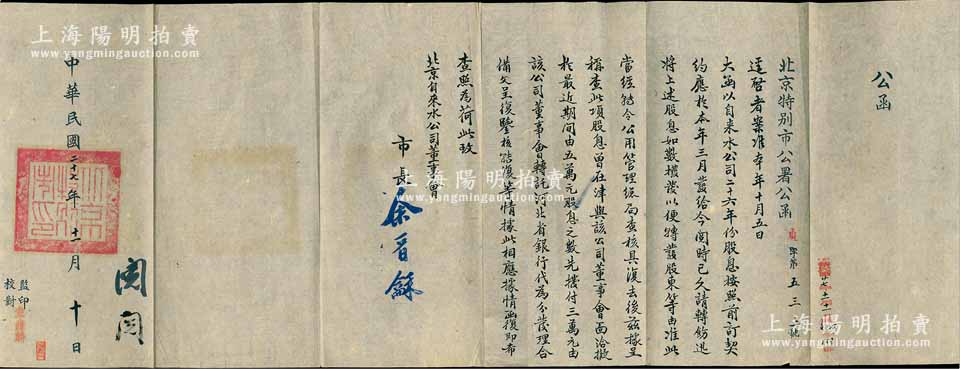 公函
北京特别市公署公函 字第五三 號
逕啓者案准本年十月五日
大函以自来水公司二十六年份股息按照前訂契
約應於本年三月發給今閱時已久請轉飭迅
將上述股息如數撥發以便轉發股東等由准此
當經飭令公用管理總局查核具復去後兹據呈
稱查此項股息曾在津與該公司董事會面洽擬
於最近期間由五萬元股息之數先撥付三萬元由
該公司董事會轉託河北省銀行代為分發理合
備文呈復鑒核飭復等情據此相應據情函復即希
查照為荷此致
北京自來水公司董事會
市長余晋龢
中華民國二十七年十一月十日
監印
校對
上海陽明拍賣
www.yangmingauction.com
上海陽明拍賣
www.yangmingauction.com
上海陽明拍賣
www.yangmingauction.com
上海陽明拍賣
www.yangmingauction.com